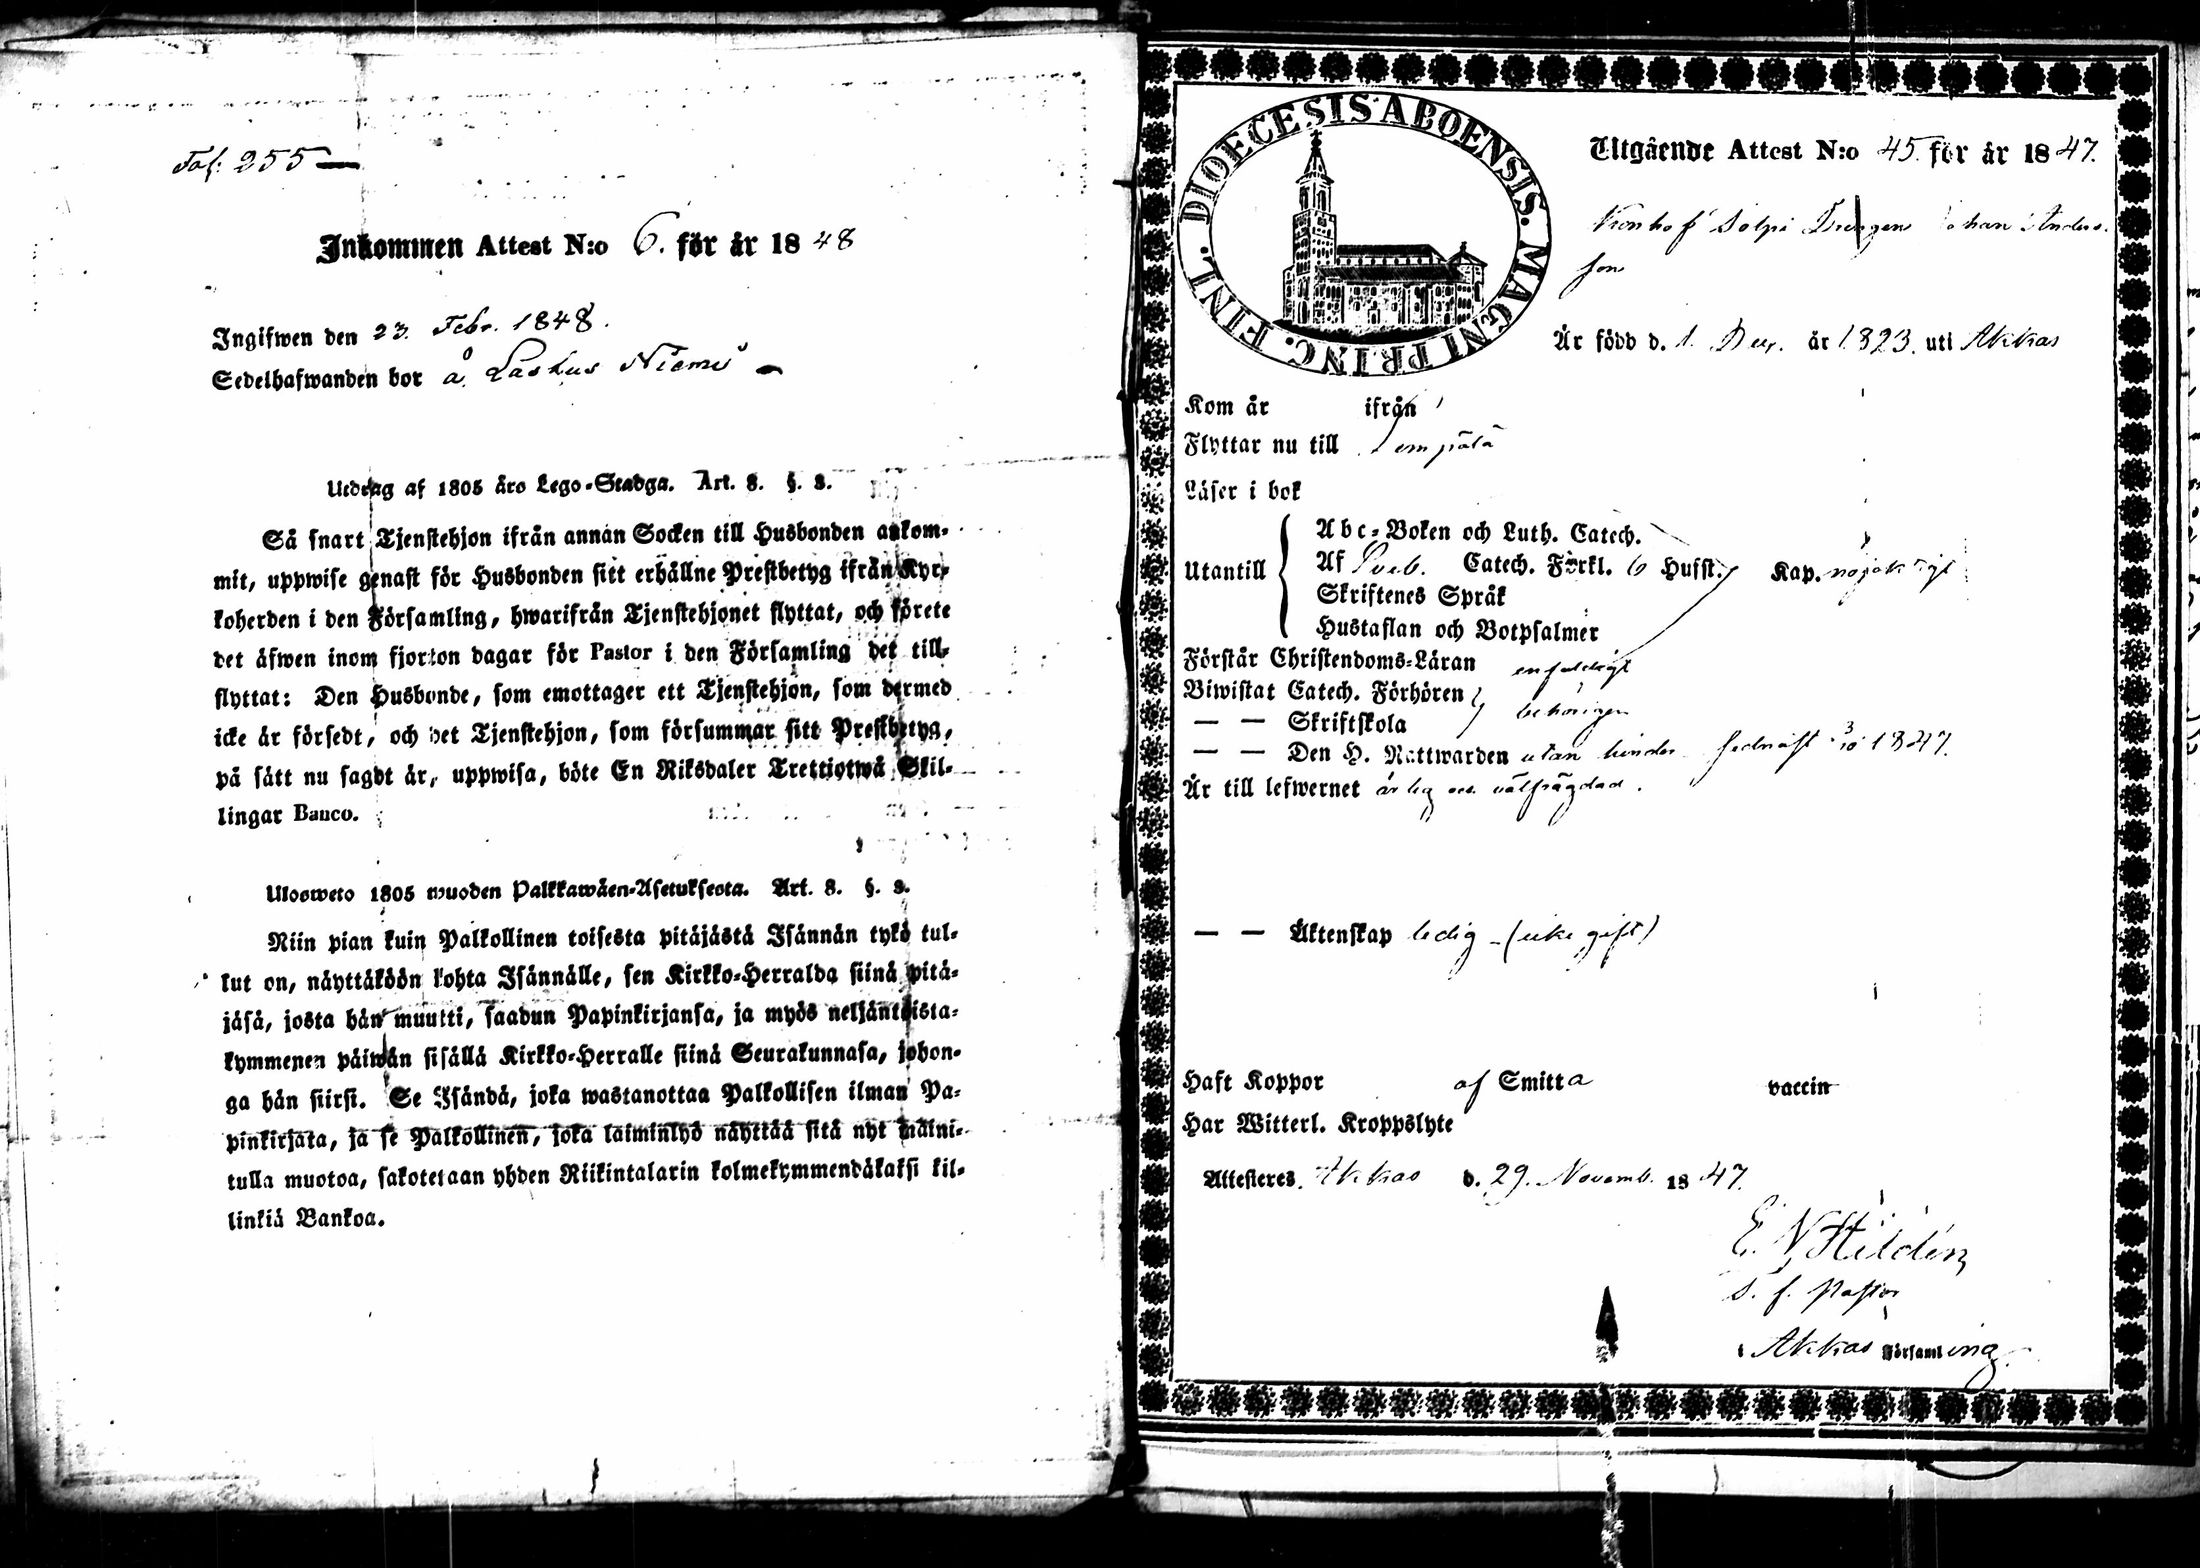 Fol: 255
Inkommen Attest N:o 6. för år 1848
Ingifwen den 23. Febr. 1848.
Sedelhafwanden bor å Laskus Niemi
Utdrag af 1805 års Lego-Stadga. Art. 8. §. 3.
Så snart Tjenstehjon ifrån annan Socken till Husbonden ankom-
mit, uppwise genast för Husbonden sitt erhållne Prestbetyg ifrån Kyr-
koherden i den Församling, hwarifrån Tjenstehjonet flyttat, och förete
det äfwen inom fjorton dagar för Pastor i den Församling det till-
flyttat: Den Husbonde, som emottager ett Tjenstehjon, som dermed
icke är försedt, och det Tjenstehjon, som försummar sitt Prestbetyg,
på sätt nu sagdt är, uppwisa, böte En Riksdaler Trettiotwå Skil-
lingar Banco.
Ulosweto 1805 wuoden Palkkawäen-Asetuksesta. Art. 8. §. 3.
Niin pian kuin Palkollinen toisesta pitäjästä Isännän tykö tul-
lut on, näyttäköön kohta Isännälle, sen Kirkko-Herralda siinä pitä-
jäsä, josta hän muutti, saadun Papinkirjansa, ja myös neljäntoista-
kymmenen päiwän sisällä Kirkko-Herralle siinä Seurakunnasa, johon-
ga hän siirsi. Se Isändä, joka wastanottaa Palkollisen ilman Pa-
pinkirjata, ja se Palkollinen, joka laiminlyö näyttää sitä nyt maini-
tulla muotoa, sakotetaan yhden Riikintalarin kolmekymmendäkaksi kil-
linkiä Bankoa.
DIOECESIS ABOENSIS. MAGNI PRINC. FINL.
Utgående Attest N:o 45. för år 1847.
Drengen Johan Anders-
son
Är född d. 1. Dec. år 1823. uti Akkas
Kom år ifrån
Flyttar nu till Lempälä
Läser i bok
Utantill
Abc-Boken och Luth. Catech.
Af Sveb. Catech. Förkl. 6 Hufst. Kap. nöjaktigt
Skriftenes Språk
Hustaflan och Botpsalmer
Förstår Christendoms-Läran enfaldigt
Biwistat Catech. Förhören
— — Skriftskola behörigen
— — Den H. Nattwarden utan hinder sednast 3/10 1847.
Är till lefwernet ärlig och välfrägdad.
— — Äktenskap ledig - (icke gift)
Haft Koppor af Smitta vaccin
Har Witterl. Kroppslyte
Attesteres. Akkas d. 29. Novemb. 1847.
E. N. Hildén
Pastor
i Akkas Församling